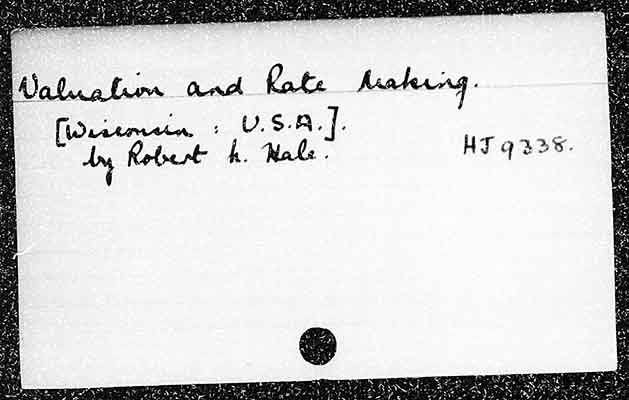 Valuation and Rate Making.
[Wisconsin : U.S.A.].
by Robert L. Hale. HJ 9338.